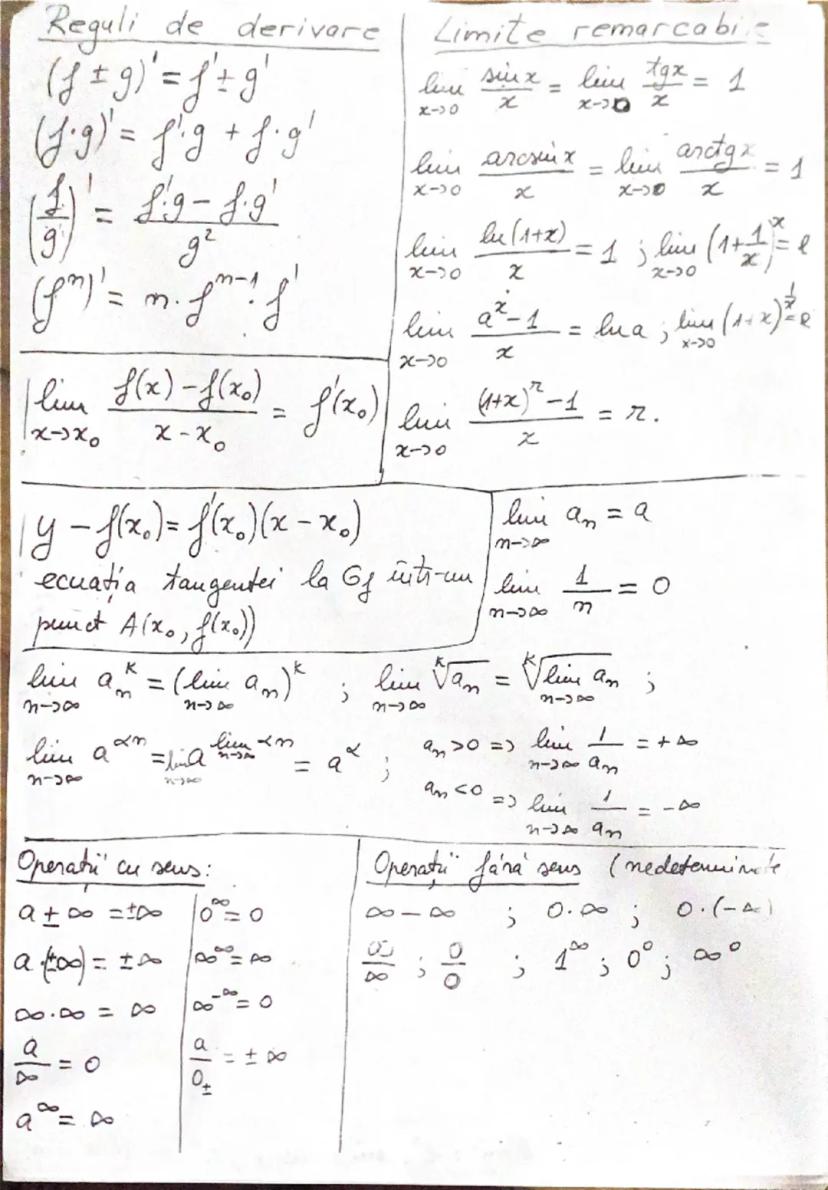 Reguli de derivare
(f ± g)' = f' ± g'
(f·g)' = f'·g + f·g'
(f/g)' = (f'g − f·g')/g²
(fⁿ)' = n·fⁿ⁻¹·f'
lim x→x₀ (f(x) − f(x₀))/(x − x₀) = f'(x₀)
Limite remarcabile
lim x→0 sin x/x = lim x→0 tg x/x = 1
lim x→0 arcsin x/x = lim x→0 arctg x/x = 1
lim x→0 ln(1+x)/x = 1 ; lim x→0 (1+1/x)^x = e
lim x→0 (a^x − 1)/x = ln a ; lim x→0 (1+x)^(1/x) = e
lim x→0 ((1+x)^r − 1)/x = r.
y − f(x₀) = f'(x₀)(x − x₀)
ecuația tangentei la Gf într-un
punct A(x₀, f(x₀))
lim n→∞ aₙ = a
lim n→∞ 1/n = 0
lim n→∞ aₙ^k = (lim n→∞ aₙ)^k ; lim n→∞ ᵏ√aₙ = ᵏ√(lim n→∞ aₙ) ;
lim n→∞ a^(αn) = lim n→∞ a^(lim n→∞ αn) = a^α ;
aₙ>0 => lim n→∞ 1/aₙ = +∞
aₙ<0 => lim n→∞ 1/aₙ = −∞
Operații cu sens:
a ± ∞ = ±∞
a·(±∞) = ±∞
∞·∞ = ∞
a/∞ = 0
a^∞ = ∞
0^∞ = 0
∞^∞ = ∞
∞^−∞ = 0
a/0± = ±∞
Operații fără sens (nedeterminate
∞ − ∞ ; 0·∞ ; 0·(−∞)
∞/∞ ; 0/0 ; 1^∞ ; 0⁰ ; ∞⁰